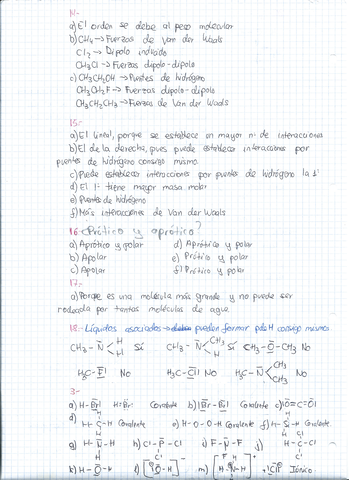 14.-
a) El orden se debe al peso molecular
b) CH4 → Fuerzas de Van der Waals
Cl2 → Dipolo inducido
CH3Cl → Fuerzas dipolo-dipolo
c) CH3CH2OH → Puentes de hidrógeno
CH3CH2F → Fuerzas dipolo-dipolo
CH3CH2CH3 → Fuerzas de Van der Waals
15.-
a) El lineal, porque se establece un mayor nº de interacciones
b) El de la derecha, pues puede establecer interacciones por
puentes de hidrógeno consigo mismo.
c) Puede establecer interacciones por puentes de hidrógeno la 1ª
d) El 1º tiene mayor masa molar
e) Puentes de hidrógeno
f) Más interacciones de Van der Waals
16.- ¿Prótico y aprótico?
a) Aprótico y polar d) Aprótico y polar
b) Apolar e) Prótico y polar
c) Apolar f) Prótico y polar
17.-
a) Porque es una molécula más grande y no puede ser
rodeada por tantas moléculas de agua
18.- Líquidos asociados → pueden formar pdeH consigo mismos.
CH3-N H H Sí CH3-N CH3 H Sí CH3-O-CH3 No
H3C-F No H3C-Cl No H3C-N CH3 CH3 No
3.-
a) H-Br Covalente b) Br-Br Covalente c) O=C=O
d) H-C-H Covalente e) H-O-O-H Covalente f) H-Si-H Covalente
g) H-N-H h) Cl-P-Cl i) F-N-F j) H-C-Cl
k) H-O-H l) [O-H] m) [H-N-H] Iónico